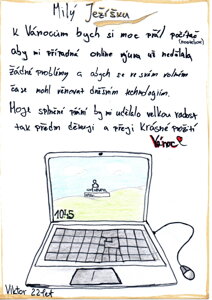 Milý Ježíšku
K Vánocům bych si moc přál počítač
(notebook)
aby mi případná online výuka už nedělala
žádné problémy a abych se ve svém volném
čase mohl věnovat dnešním technologiím.
Moje splnění přání by mi udělalo velkou radost
tak předem děkuji a přeji krásné prožití
Vánoc
10:45
Viktor 22 let